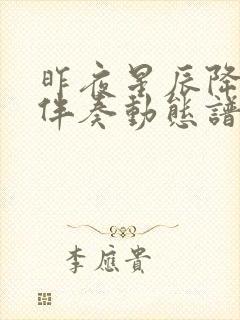 昨夜星辰降
伴奏動態譜
李應貴